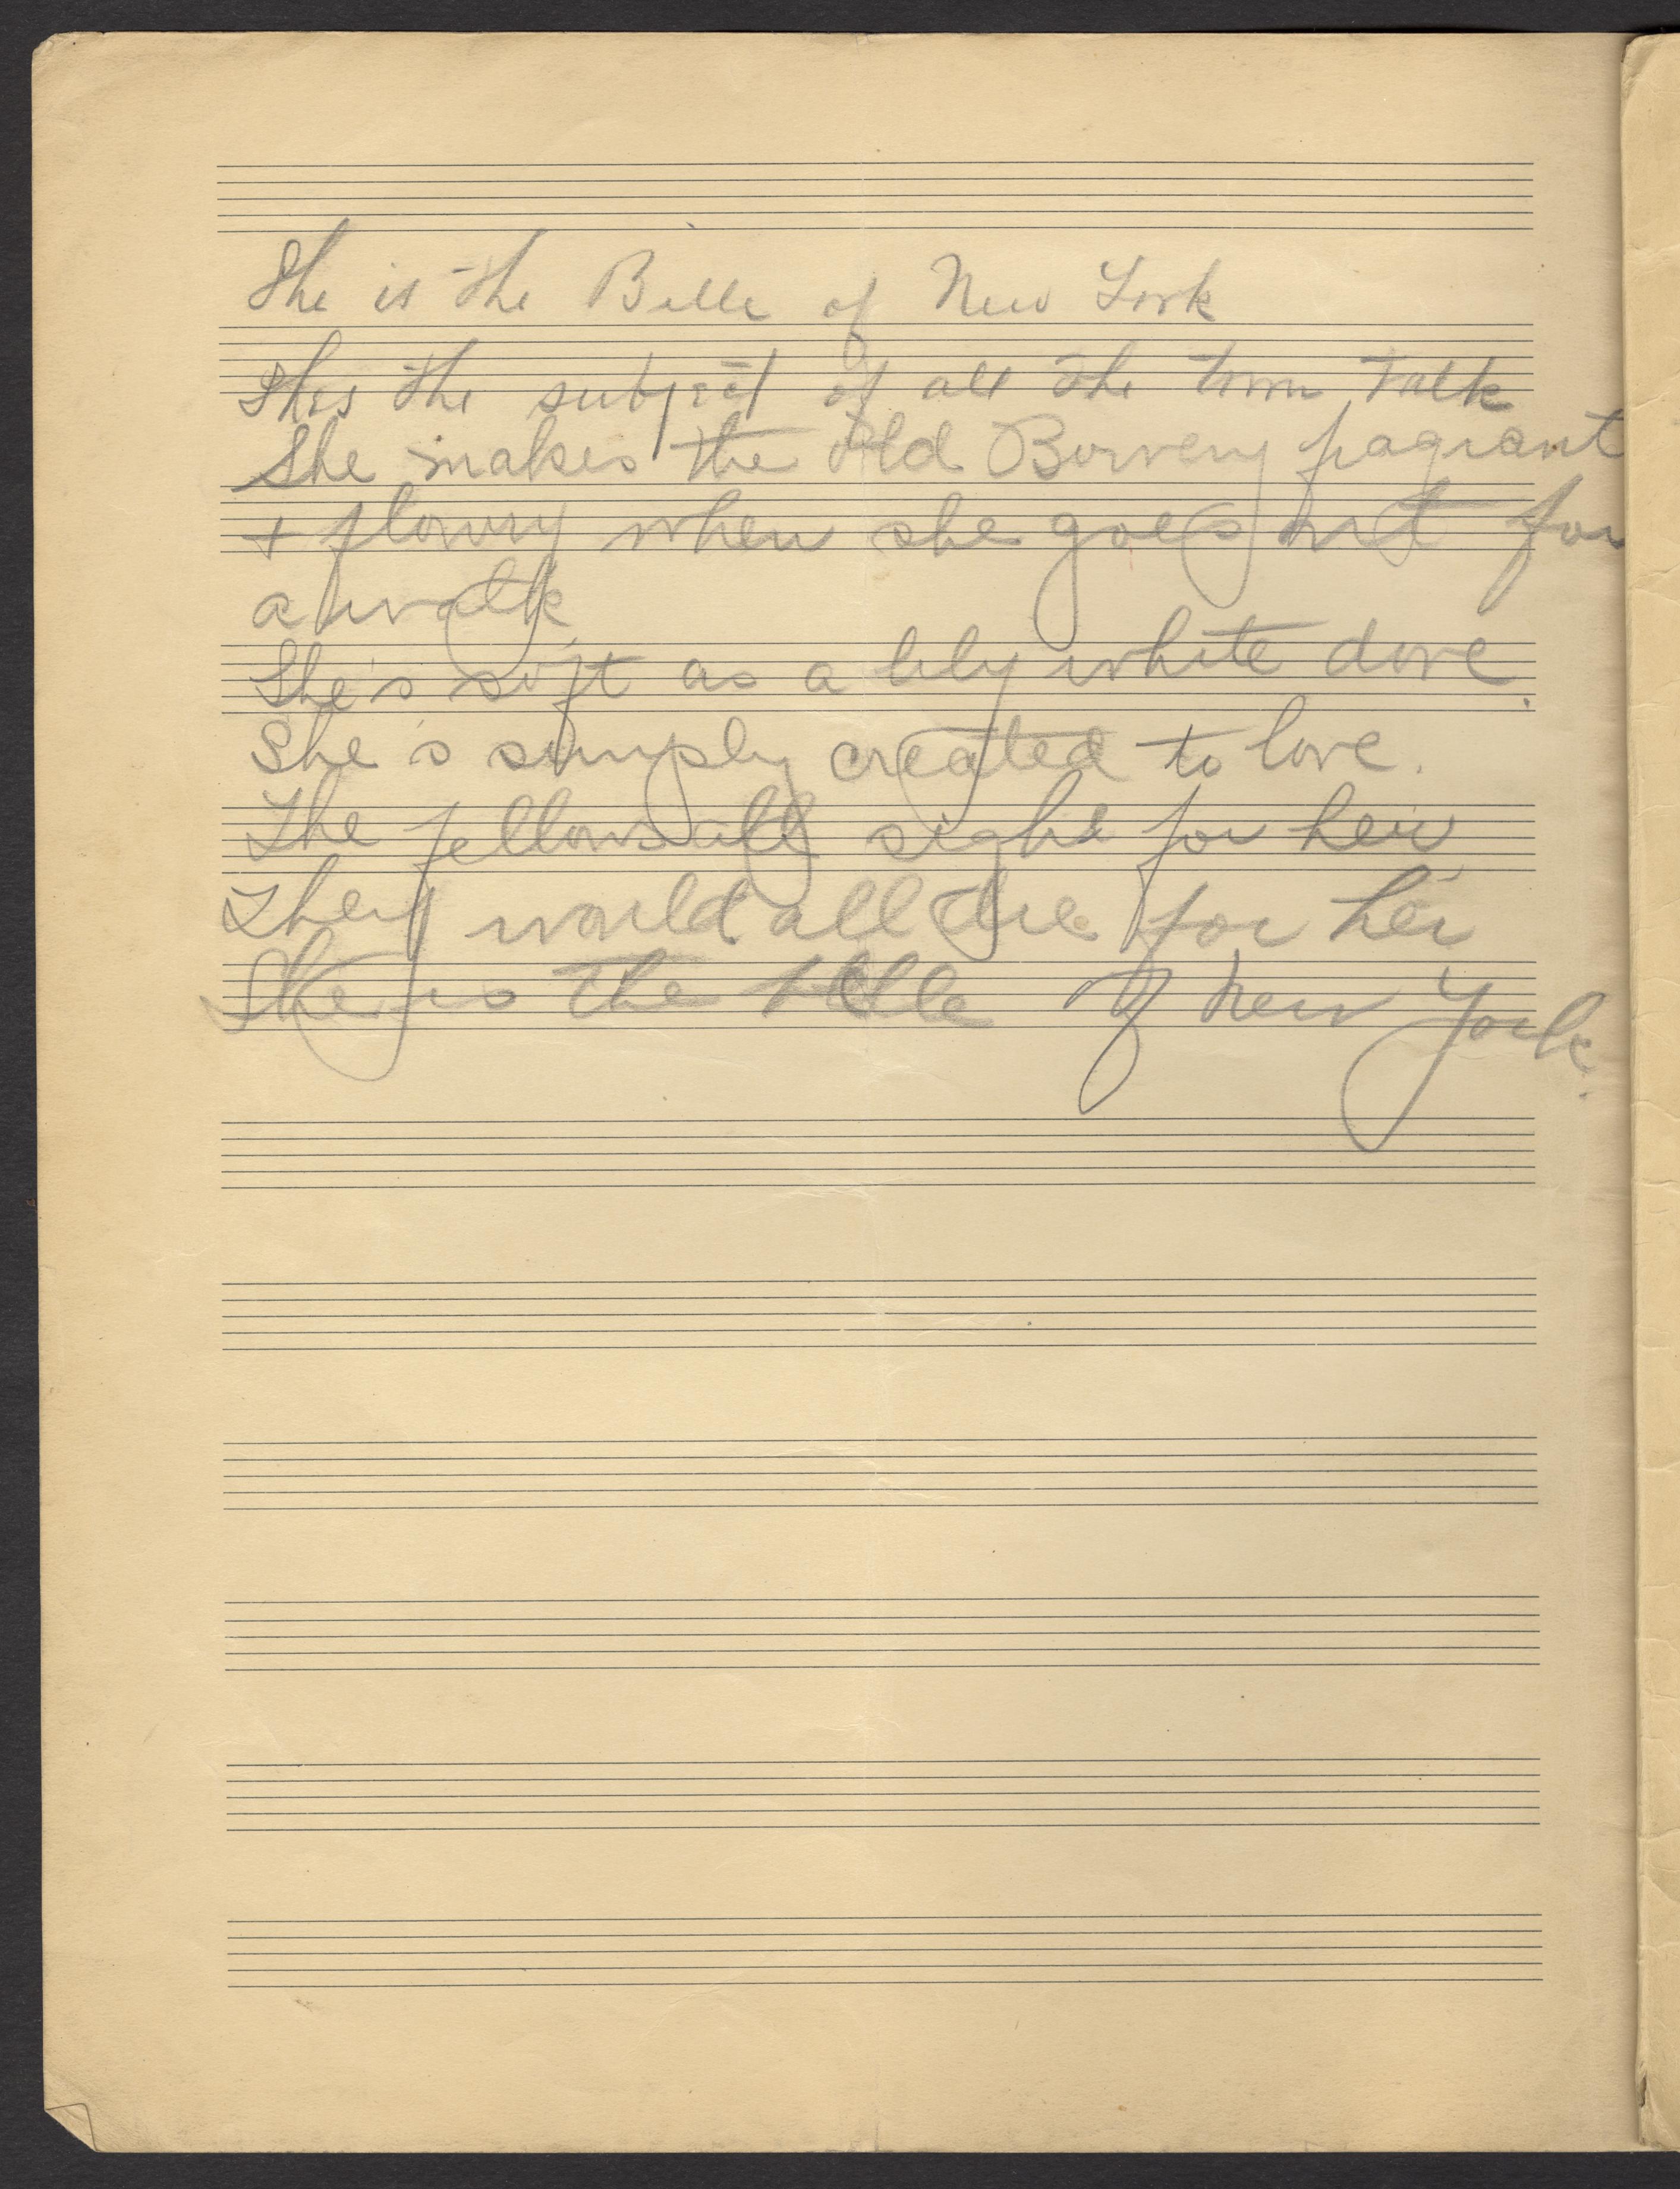 She is the Belle of New York
Shes the subject of all the town talk
She makes the old Bowery fragrant
+ flowery when she goes out for
a walk
She's soft as a lily white dove.
She's simply created to love.
The fellows all sigh for her
They would all die for her
She is the belle of New York.